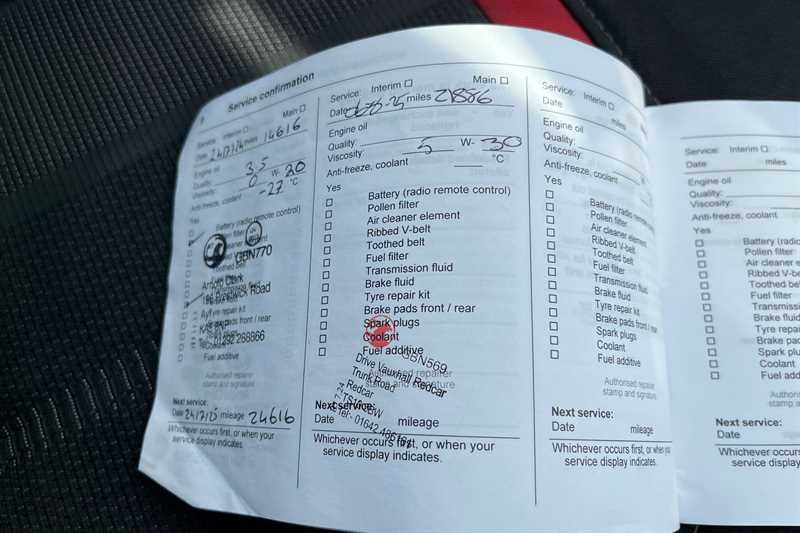 Service confirmation
Service: Interim Main
Date 24/7/24 miles 14616
Engine oil
Quality: 3,5
Viscosity: 0 W- 20
Anti-freeze, coolant -27 °C
Battery (radio remote control)
GBN770
Arnold Clark
Road
Tyre repair kit
01292 288866
Coolant
Fuel additive
Authorised repair
stamp and signature
Next service:
Date 24/7/25 mileage 24616
Whichever occurs first, or when your
service display indicates.
Service: Interim Main
Date miles 21886
Engine oil
Quality:
Viscosity: 5 W- 30
Anti-freeze, coolant °C
Yes
Battery (radio remote control)
Pollen filter
Air cleaner element
Ribbed V-belt
Toothed belt
Fuel filter
Transmission fluid
Brake fluid
Tyre repair kit
Brake pads front / rear
Spark plugs
Coolant
Fuel additive
GBN569
Drive Vauxhall Redcar
Trunk Road
Redcar
Next service:
Date mileage
Whichever occurs first, or when your
service display indicates.
Service: Interim
Date miles
Engine oil
Quality:
Viscosity:
Anti-freeze, coolant
Yes
Battery (radio remote
Pollen filter
Air cleaner element
Ribbed V-belt
Toothed belt
Fuel filter
Transmission fluid
Brake fluid
Tyre repair kit
Brake pads front / rear
Spark plugs
Coolant
Fuel additive
Authorised repairer
stamp and signature
Next service:
Date mileage
Whichever occurs first, or when your
service display indicates.
Service: Interim
Date miles
Engine oil
Quality:
Viscosity:
Anti-freeze, coolant
Yes
Battery (radio
Pollen filter
Air cleaner
Ribbed V-belt
Toothed
Fuel filter
Transmission
Brake fluid
Tyre repair
Brake pads
Spark
Coolant
Fuel
stamp
Next service:
Date mileage
Whichever occurs first,
service display indicates.